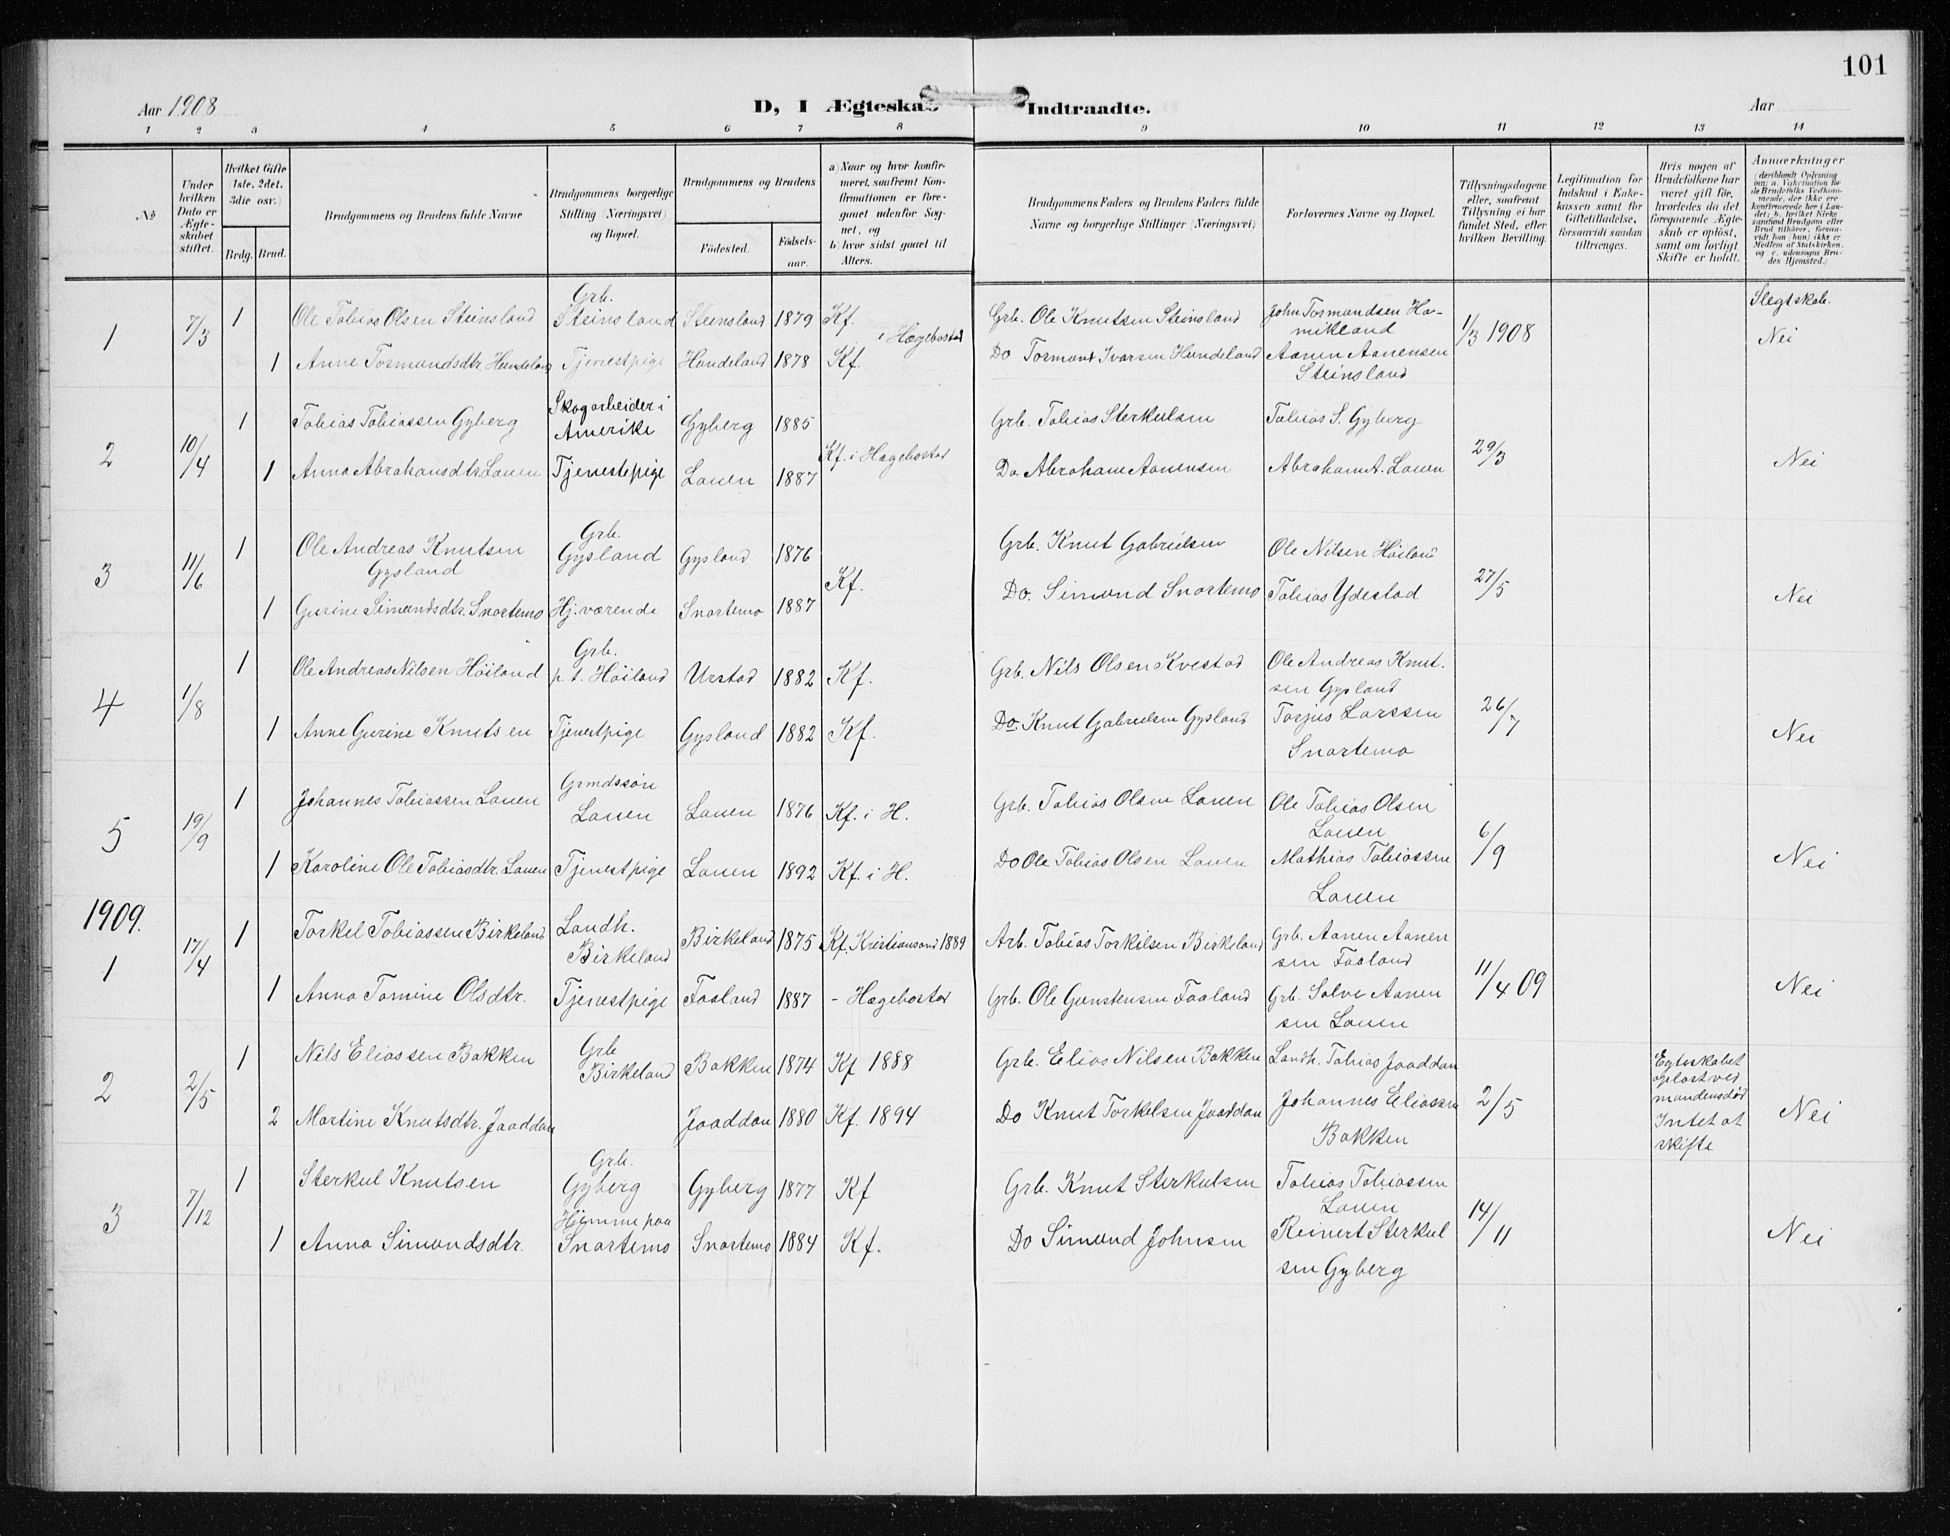 101
Aar 1908
D, I Ægteskab Indtraadte.
Aar
1 2 3 4 5 6 7 8 9 10 11 12 13 14
№
Under hvilken Dato er Ægteskabet stiftet.
Hvilket Gifte (1ste, 2det, 3die osv.)
Brdg. Brud.
Brudgommens og Brudens fulde Navne
Brudgommens borgerlige Stilling (Næringsvei) og Bopæl.
Brudgommens og Brudens
Födested.
Födselsaar.
a) Naar og hvor konfirmeret, saafremt Konfirmationen er foregaaet udenfor Sognet, og
b) hvor sidst gaaet til Alters.
Brudgommens Faders og Brudens Faders fulde Navne og borgerlige Stillinger (Næringsvei)
Forlovernes Navne og Bopæl.
Tillysningsdagene eller, saafremt Tillysning ei har fundet Sted, efter hvilken Bevilling.
Legitimation for Indskud i Enkekassen samt for Giftetilladelse, forsaavidt saadan tiltrænges.
Hvis nogen af Brudefolkene har været gift för, hvorledes da det foregaaende Ægteskab er oplöst, samt om lovligt Skifte er holdt.
Anmærkninger (deriblandt Oplysning om: a. Vakcination for de Brudefolks Vedkommende, der ikke ere konfirmerede her i Landet; b. hvilket Kirkesamfund Brudgom eller Brud tilhörer, forsaavidt han (hun) ikke er Medlem af Statskirken, og c. udensogns Brudes Hjemsted.)
1 7/3 1 Ole Tobias Olsen Steinsland Grb. Steinsland Steinsland 1879 Kf. i Hægebostad Grb. Ole Knutsen Steinsland John Tormundsen Hamikland 1/3 1908 Slegtskab. Nei
1 Anne Tormundsdtr. Hundeland Tjenestpige Hundeland 1878 Kf. Do Tormont Ivarsen Hundeland Aanen Aanensen Steinsland
2 10/4 1 Tobias Tobiassen Gyberg Skogarbeider i Amerika Gyberg 1885 Kf. i Hægebostad Grb. Tobias Sterkulsen Tobias S. Gyberg 29/3 Nei
1 Anna Abrahamsdtr. Lauen Tjenestepige Lauen 1887 Do. Abraham Aanensen Abraham A. Lauen
3 11/6 1 Ole Andreas Knutsen Gysland Grb. Gysland Gysland 1876 Kf. Grb. Knut Gabrielsen Ole Nilsen Höiland 27/5 Nei
1 Gurine Simundsdtr. Snartemo Hj. værende Snartemo 1887 Do. Simund Snartemo Tobias Ydestad
4 1/8 1 Ole Andreas Nilsen Höiland Grb. p. t. Höiland Urstad 1882 Kf. Grb. Nils Olsen Kvestad Ole Andreas Knutsen Gysland 26/7 Nei
1 Anne Gurine Knutsen Tjenestpige Gysland 1882 Kf. Do. Knut Gabrielsen Gysland Torjus Larssen Snartemo
5 19/9 1 Johannes Tobiassen Lauen Grmdssön Lauen Lauen 1876 Kf. i H. Grb. Tobias Olsen Lauen Ole Tobias Olsen Lauen 6/9 Nei
1 Karoline Ole Tobiasdtr. Lauen Tjenestpige Lauen 1892 Kf. i H. Do Ole Tobias Olsen Lauen Mathias Tobiassen Lauen
1909.
1 17/4 1 Torkel Tobiassen Birkeland Landh. Birkeland Birkeland 1875 Kf. Kristiansand 1889 Arb. Tobias Torkilsen Birkeland Grb. Aanen Aanensen Faaland 11/4 09 Nei
1 Anna Tomine Olsdtr. Tjenestpige Faaland 1887 - Hægebostad Grb. Ole Gunstensen Faaland Grb. Salve Aanensen Lauen
2 2/5 1 Nils Eliassen Bakken Grb Birkeland Bakken 1874 Kf 1888 Grb. Elias Nilsen Bakken Landh. Tobias Jaaddan 2/5 Egteskabet oplöst ved mandens död Intet at skifte Nei
2 Martine Knutsdtr. Jaaddan Jaaddan 1880 Kf. 1894 Do Knut Torkelsen Jaaddan Johannes Eliassen Bakken
3 7/12 1 Sterkul Knutsen Grb. Gyberg Gyberg 1877 Kf Grb. Knut Sterkulsen Tobias Tobiassen Lauen 14/11 Nei
1 Anna Simundsdtr. Hjemme paa Snartemo Snartemo 1884 Kf. Do Simund Johnsen Reinert Sterkulsen Gyberg